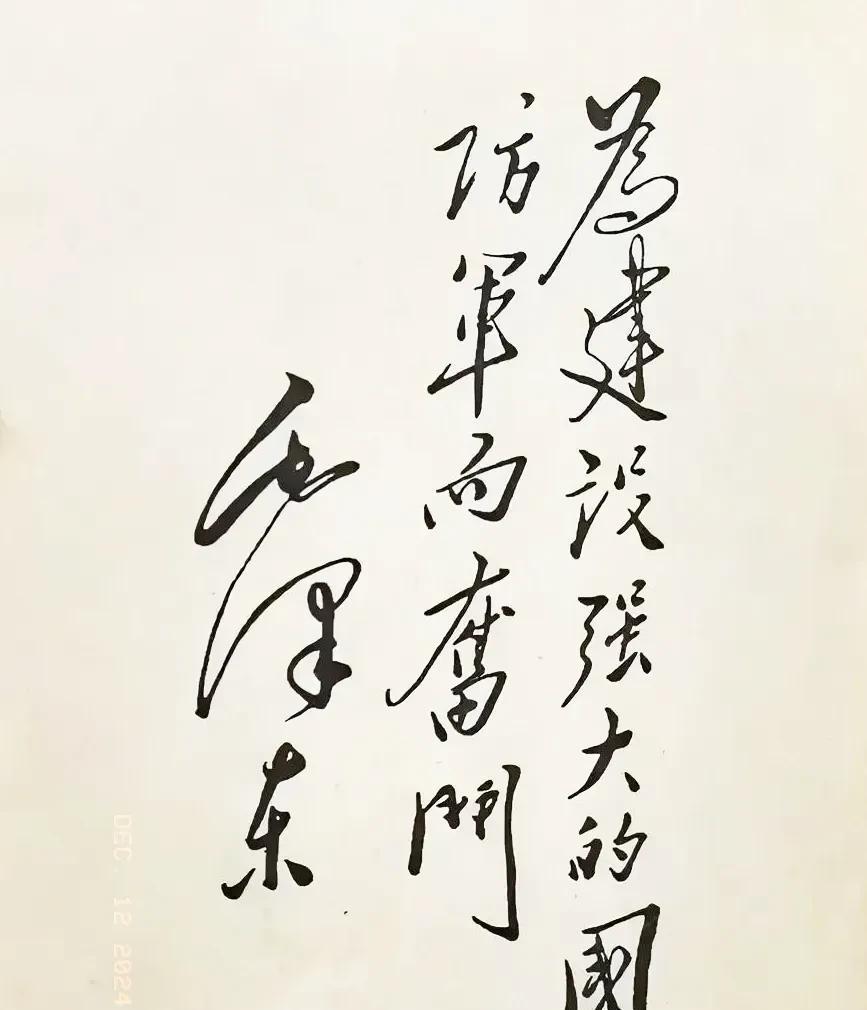 為建設强大的國
防軍而奮鬥
毛澤东
DEC. 12 2024